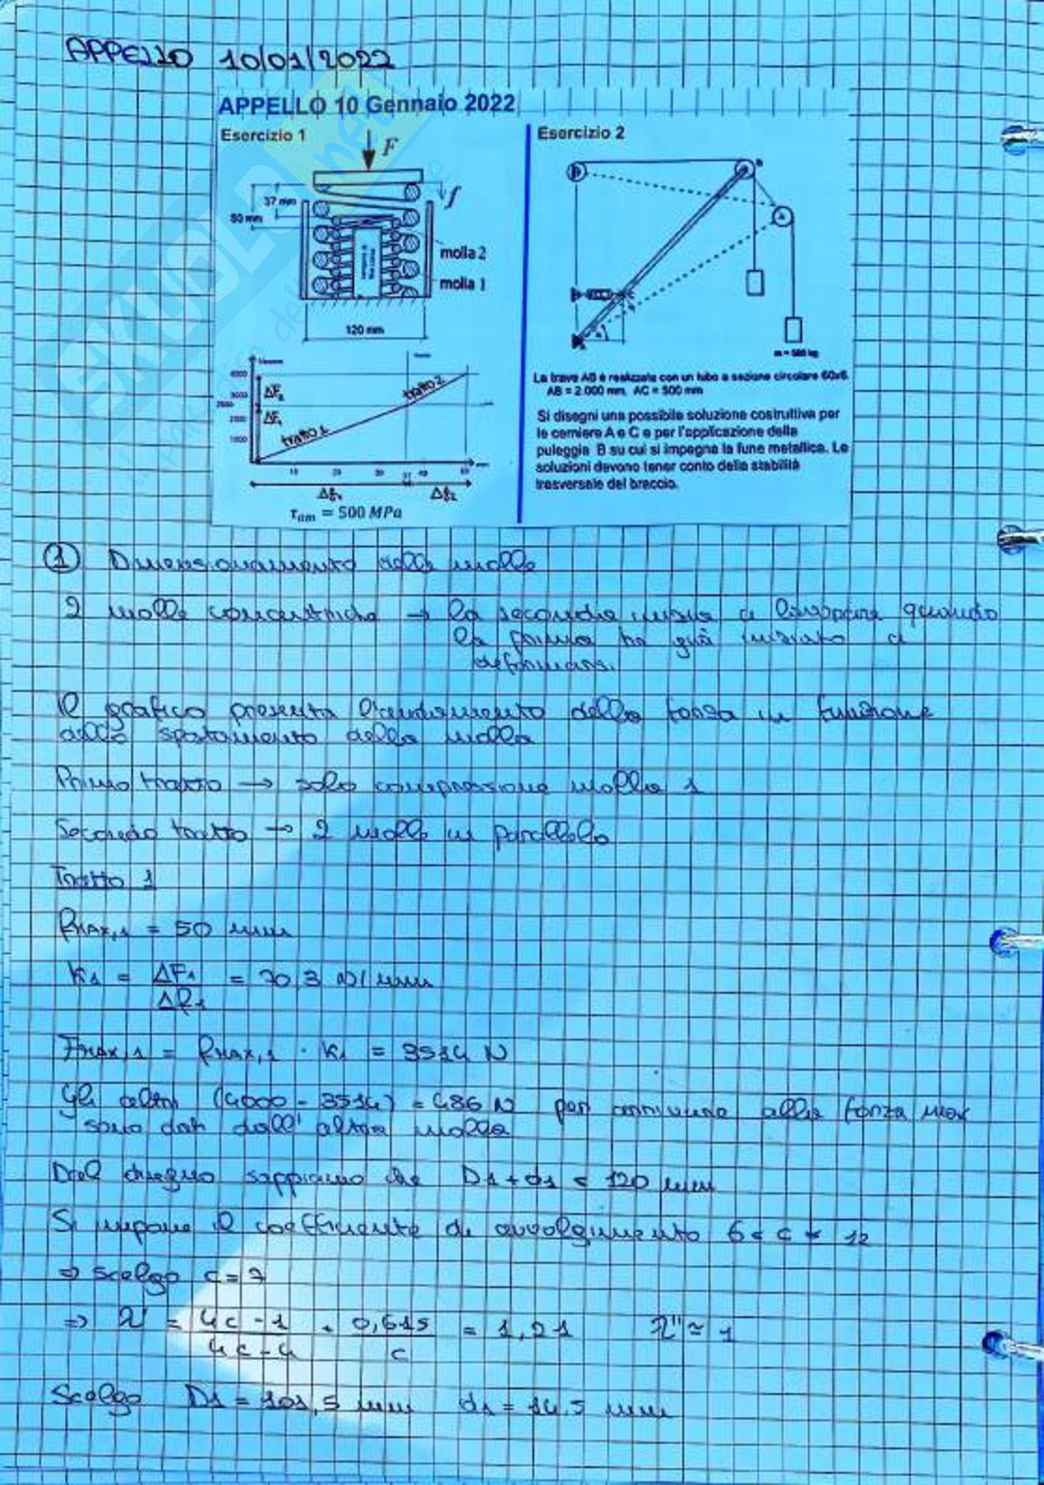 APPELLO 10/01/2022
APPELLO 10 Gennaio 2022
Esercizio 1
F
37 mm
f
50 mm
molla 2
molla 1
120 mm
4000
3000
ΔF2
2000
ΔF1
1000
tratto 1
tratto 2
10 20 30 37 40 50
Δf1 Δf2
τam = 500 MPa
Esercizio 2
m = 500 kg
La trave AB è realizzata con un tubo a sezione circolare 60x6.
AB = 2.000 mm, AC = 500 mm
Si disegni una possibile soluzione costruttiva per
le cerniere A e C e per l'applicazione della
puleggia B su cui si impegna la fune metallica. Le
soluzioni devono tener conto della stabilità
trasversale del braccio.
① Dimensionamento delle molle
2 molle concentriche → la seconda inizia a lavorare quando
la prima ha già iniziato a
deformarsi
Il grafico presenta l'andamento della forza in funzione
dello spostamento della molla
Primo tratto → solo compressione molla 1
Secondo tratto → 2 molle in parallelo
Tratto 1
fMAX,1 = 50 mm
K1 = ΔF1/Δf1 = 70,3 N/mm
FMAX,1 = fMAX,1 · K1 = 3514 N
Gli altri (4000 - 3514) = 486 N per arrivare alla forza max
sono dati dall'altra molla
Dal disegno sappiamo che D1 + d1 < 120 mm
Si impone il coefficiente di avvolgimento 6 < c < 12
⇒ scelgo c = 7
⇒ λ' = (4c - 1)/(4c - 4) + 0,615/c = 1,21 λ'' ≃ 1
Scelgo D1 = 101,5 mm d1 = 14,5 mm